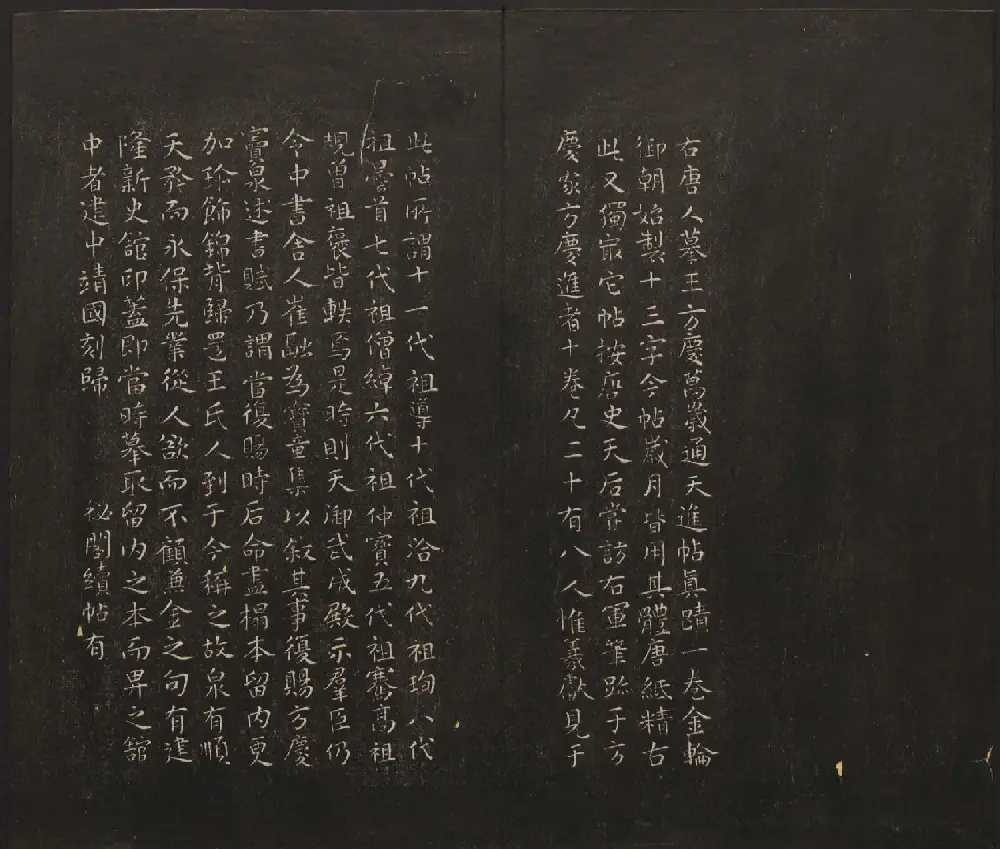 右唐人摹王方慶萬歲通天進帖真蹟一卷金輪
御朝始製十三字今帖歲月皆用其體唐紙精古
此又獨最它帖按唐史天后嘗訪右軍筆跡于方
慶家方慶進者十卷凡二十有八人惟羲獻見于
此帖所謂十一代祖導十代祖洽九代祖珣八代
祖曇首七代祖僧綽六代祖仲寶五代祖騫高祖
規曾祖褒皆軼焉是時則天御武成殿示羣臣仍
令中書舍人崔融為寶章集以敘其事復賜方慶
竇泉述書賦乃謂嘗復賜時后命盡搨本留内更
加珍飾錦背歸還王氏人到于今稱之故泉有順
天矜而永保先業從人欲而不顧兼金之句有建
隆新史館印蓋即當時摹取留内之本而畀之館
中者建中靖國刻歸 祕閣續帖有